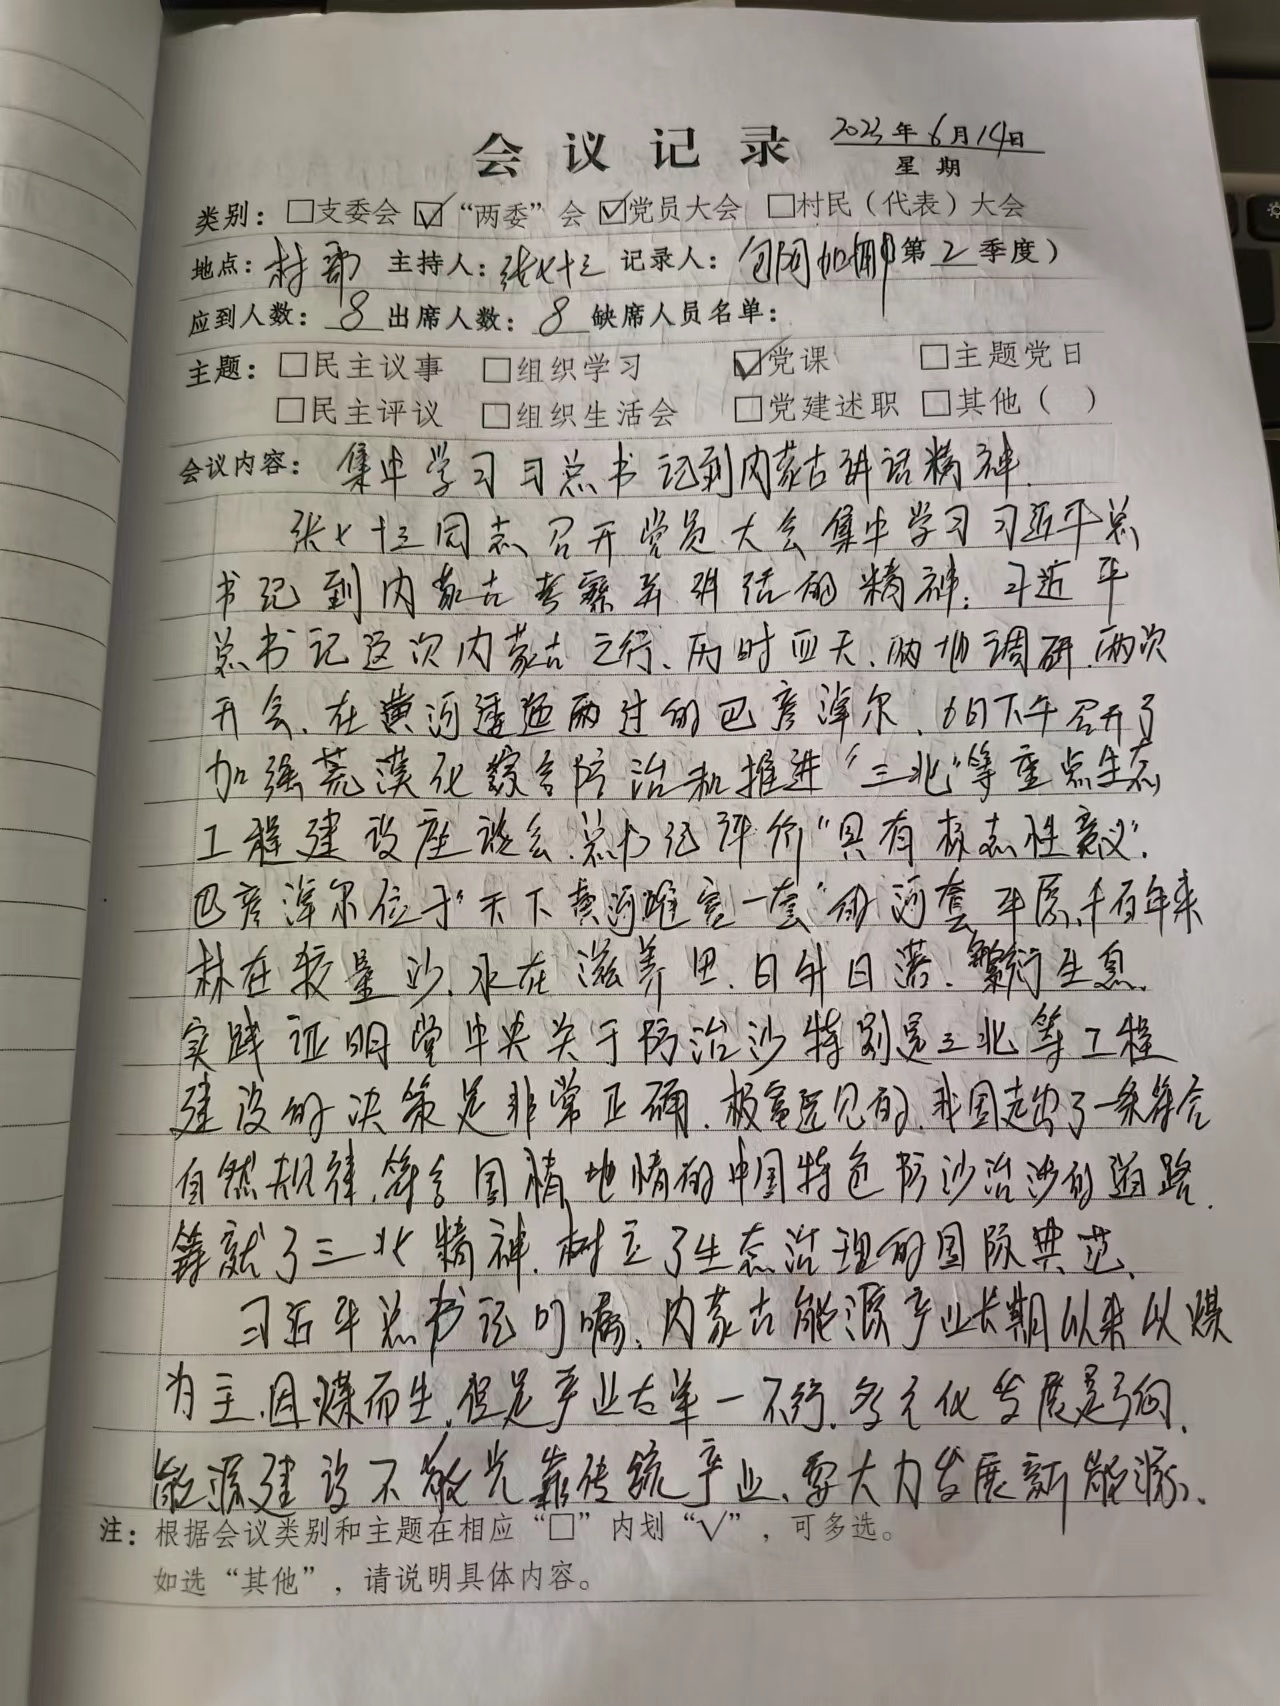 会议记录 2023年6月14日
星期
类别：□支委会 ☑“两委”会 ☑党员大会 □村民（代表）大会
地点：村部 主持人：张七十三 记录人：包阿如娜（第2季度）
应到人数：8 出席人数：8 缺席人员名单：
主题：□民主议事 □组织学习 ☑党课 □主题党日
□民主评议 □组织生活会 □党建述职 □其他（ ）
会议内容：集中学习习总书记到内蒙古讲话精神.
张七十三同志召开党员大会集中学习习近平总
书记到内蒙古考察并讲话的精神；习近平
总书记这次内蒙古之行、两时四天、两地调研、两次
开会、在黄河逶迤而过的巴彦淖尔、6日下午召开了
加强荒漠化综合防治和推进“三北”等重点生态
工程建设座谈会.总书记评价“具有标志性意义”.
巴彦淖尔位于“天下黄河唯富一套”的河套平原.千百年来
林在较量沙、水在滋养田、日升日落、繁衍生息.
实践证明党中央关于防治沙特别是三北等工程
建设的决策是非常正确、极富远见的、我国走出了一条符合
自然规律、符合国情地情的中国特色防沙治沙的道路.
等就了三北精神、树立了生态治理的国际典范、
习近平总书记叮嘱、内蒙古能源产业长期以来以煤
为主、因煤而生、但是产业太单一不行、多元化发展是方向、
能源建设不能光靠传统产业、要大力发展新能源、
注：根据会议类别和主题在相应“□”内划“√”，可多选。
如选“其他”，请说明具体内容。